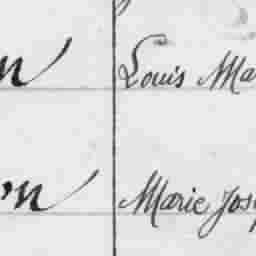 n Louis Ma
n Marie Jos